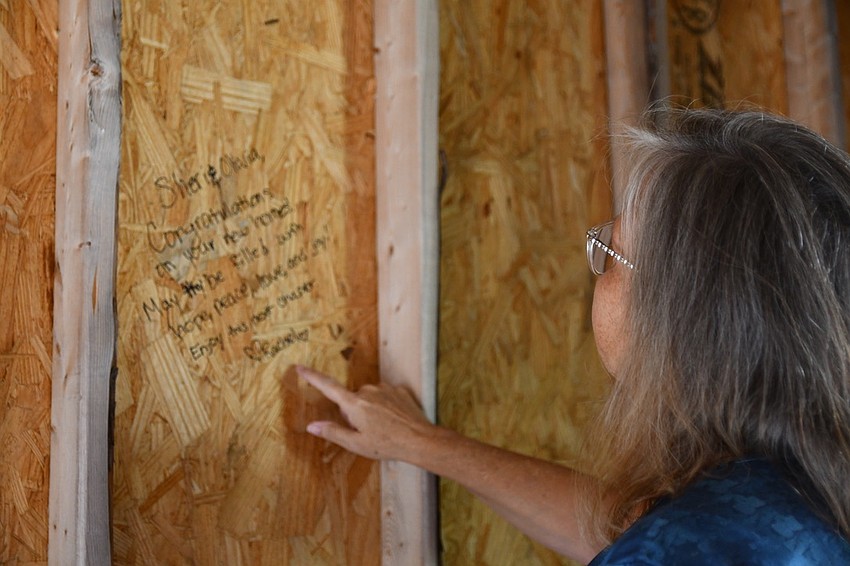 Sheri & Olivia,
Congratulations
on your new home!
May it be filled with
hope, peace, love, and joy!
Enjoy this next chapter